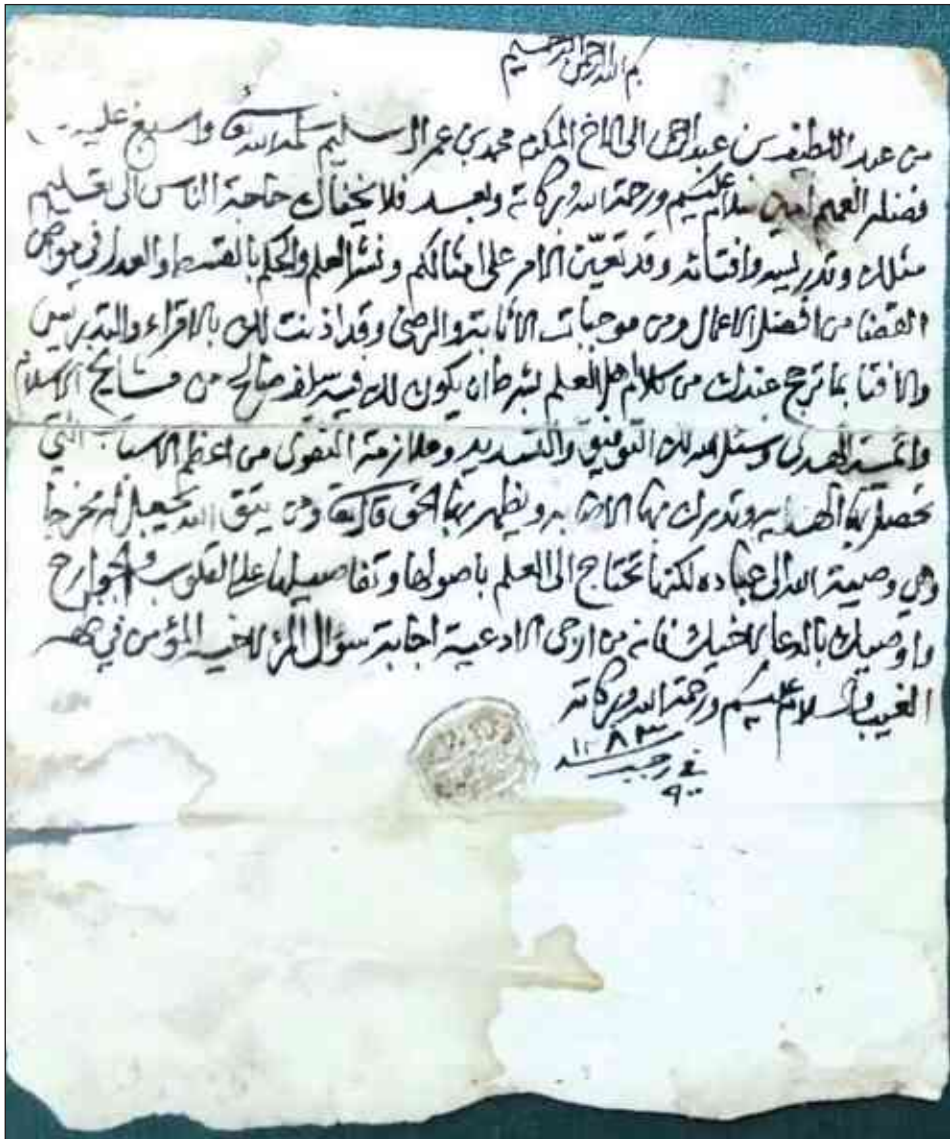 بسم الله الرحمن الرحيم
من عبد اللطيف بن عبد الرحمن الى الاخ المكرم محمد بن عمر السليم سلمه الله و اسبغ عليه
فضله العميم امين سلام عليكم ورحمة الله وبركاته وبعد فلا يخفاك حاجة الناس الى تعليم
مثلك وتدريسه وافتائه وقد تعين الامر على امثالكم ونشر العلم والحكم بالقسط والعدل في مواضع
القضا من افضل الاعمال ومن موجبات الأثابة والرضى وقد اذنت لك بالاقراء والتدريس
والافتا بما ترجح عندك من كلام اهل العلم بشرط ان يكون لك فيه سلف صالح من مشايخ الاسلام
وائمة الهدى ونسئل الله لك التوفيق والتسديد وملازمة التقوى من اعظم الاسباب التي
تحصل بها الهدايه وتدرك بها الاصابه ويظهر بها الحق قال تعالى ومن يتق الله يجعل له مخرجا
وهي وصية الله الى عباده لكنها تحتاج الى العلم باصولها وتفاصيلها على القلوب والجوارح
واوصيك بالدعا لاخيك فانه من ارجى الادعية اجابة سؤال المرء لاخيه المؤمن في ظهر
الغيب والسلام عليكم ورحمة الله وبركاته
١٢٨٣
في رجب